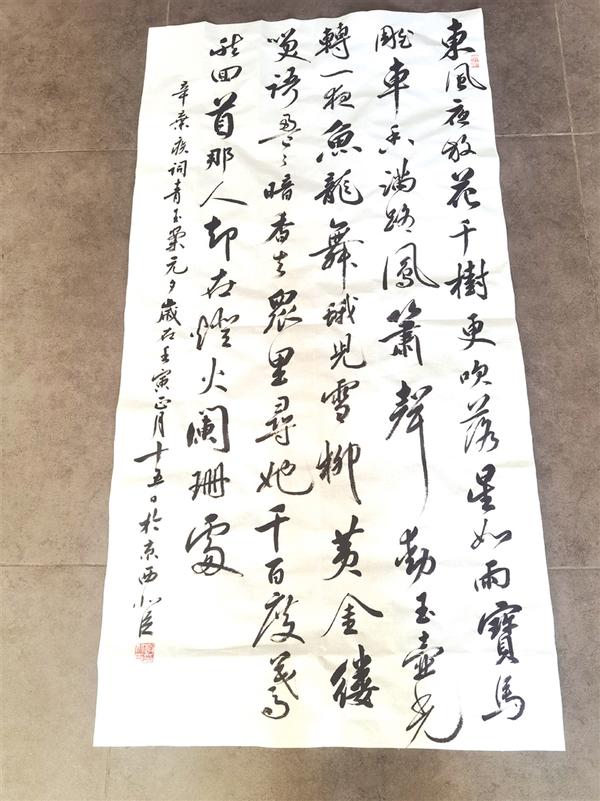 東風夜放花千樹更吹落星如雨寶馬
雕車香滿路鳳簫聲動玉壺光
轉一夜魚龍舞蛾兒雪柳黃金縷
笑語盈々暗香去眾里尋她千百度驀
然回首那人却在燈火闌珊處
辛棄疾詞青玉案元夕歲在壬寅正月十五日於京西